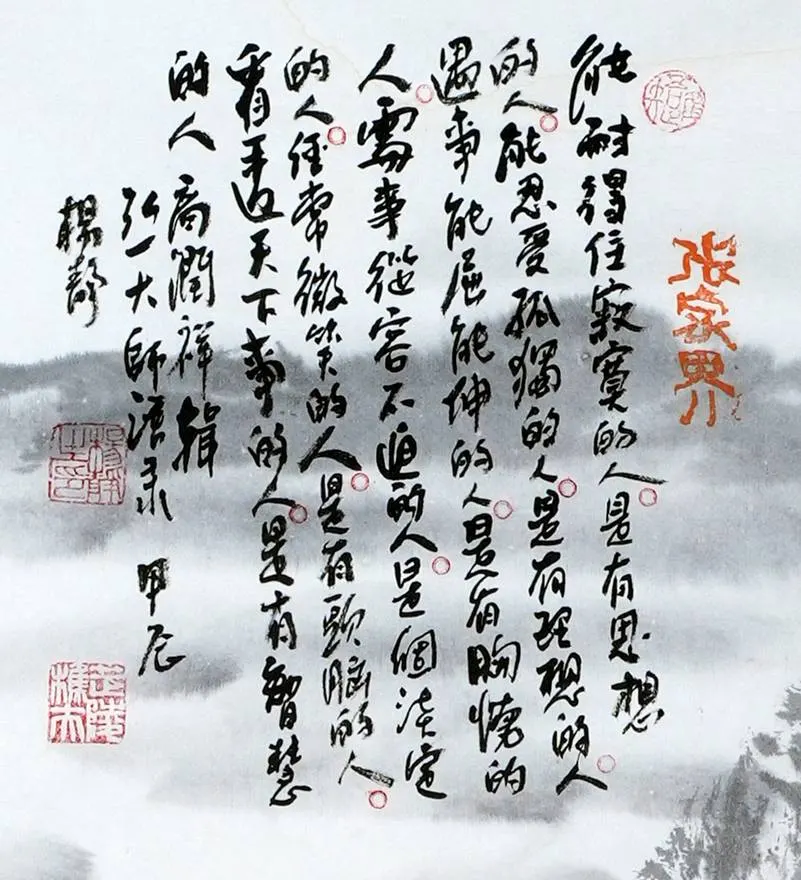 张家界
能耐得住寂寞的人是有思想
的人能忍受孤獨的人是有理想的人
遇事能屈能伸的人是有胸懷的
人處事從容不迫的人是個淡定
的人经常微笑的人是有頭腦的人
看透天下事的人是有智慧
的人高潤祥輯
弘一大師语录 甲辰
楊静